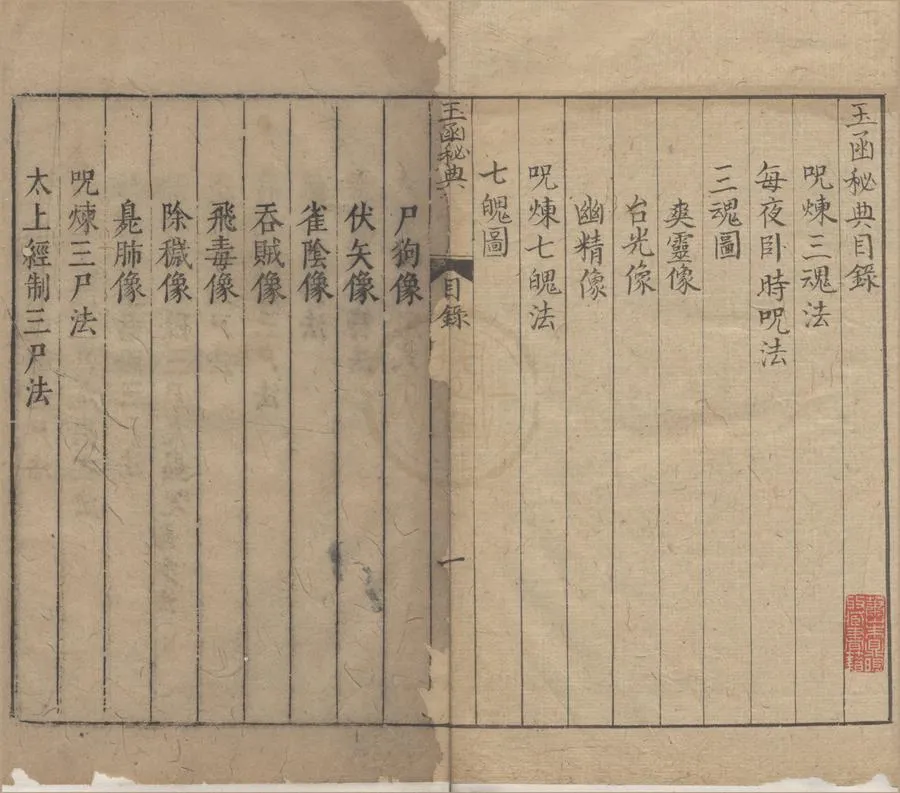 玉函秘典目錄
呪煉三魂法
每夜卧時呪法
三魂圖
爽靈像
台光像
幽精像
呪煉七魄法
七魄圖
玉函秘典
目錄
一
尸狗像
伏矢像
雀陰像
吞賊像
飛毒像
除穢像
臭肺像
呪煉三尸法
太上經制三尸法